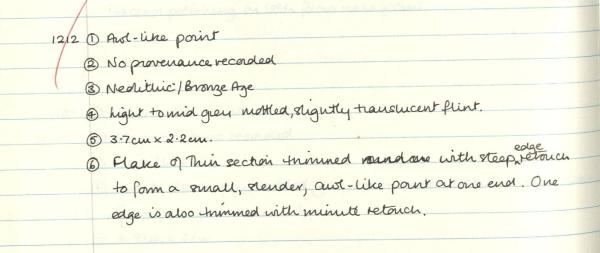 1212 ① Awl-like point
② No provenance recorded
③ Neolithic/Bronze Age
④ Light to mid grey mottled, slightly translucent flint.
⑤ 3.7cm x 2.2cm.
⑥ Flake of thin section trimmed with steep edge retouch
to form a small, slender, awl-like point at one end. One
edge is also trimmed with minute retouch.